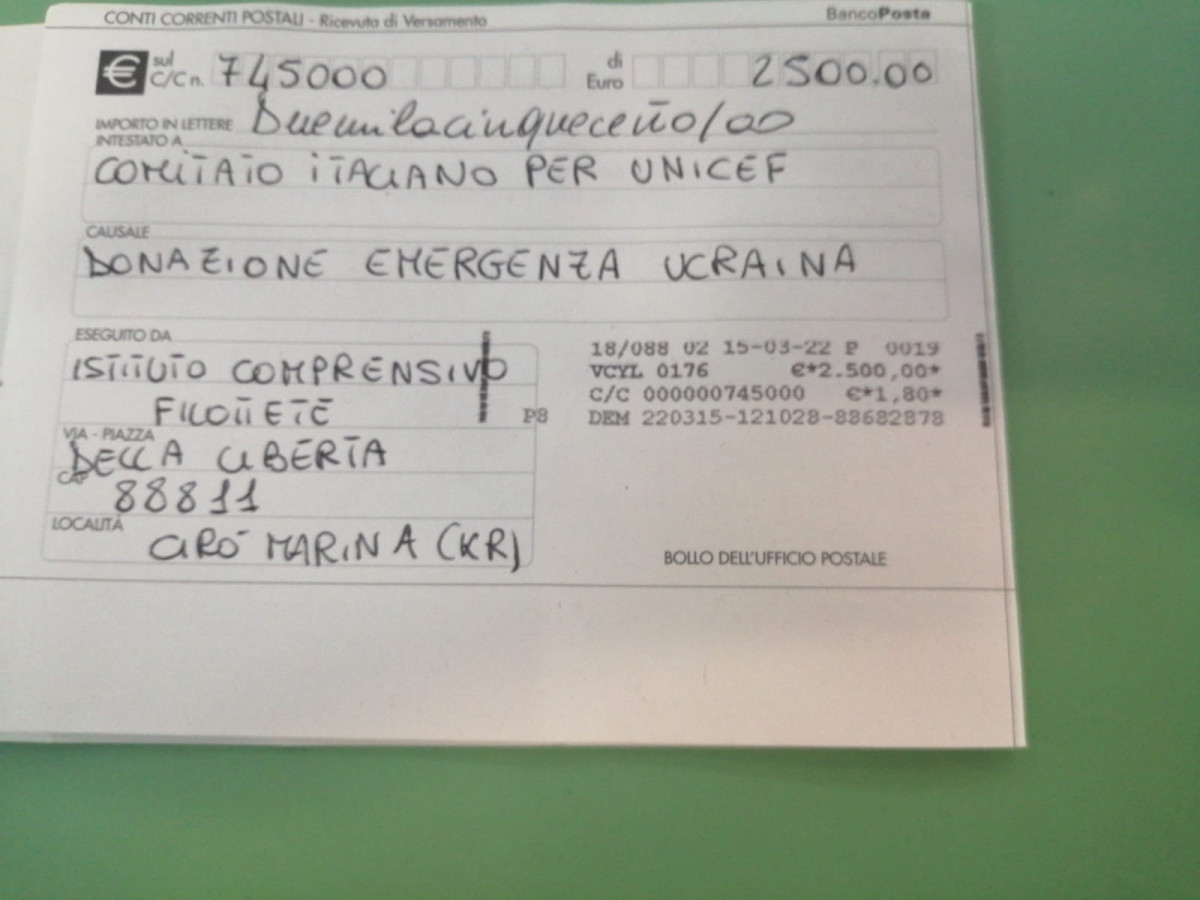 CONTI CORRENTI POSTALI - Ricevuta di Versamento BancoPosta
€ sul C/C n. 745000 di Euro 2500.00
IMPORTO IN LETTERE Duemilacinquecento/00
INTESTATO A
COMITATO ITALIANO PER UNICEF
CAUSALE
DONAZIONE EMERGENZA UCRAINA
ESEGUITO DA
ISTITUTO COMPRENSIVO
FILOTTETE
VIA - PIAZZA
DELLA LIBERTA
CAP 88811
LOCALITÀ
CIRÒ MARINA (KR)
18/088 02 15-03-22 P 0019
VCYL 0176 €*2.500,00*
C/C 000000745000 €*1,80*
P8 DEM 220315-121028-88682878
BOLLO DELL'UFFICIO POSTALE